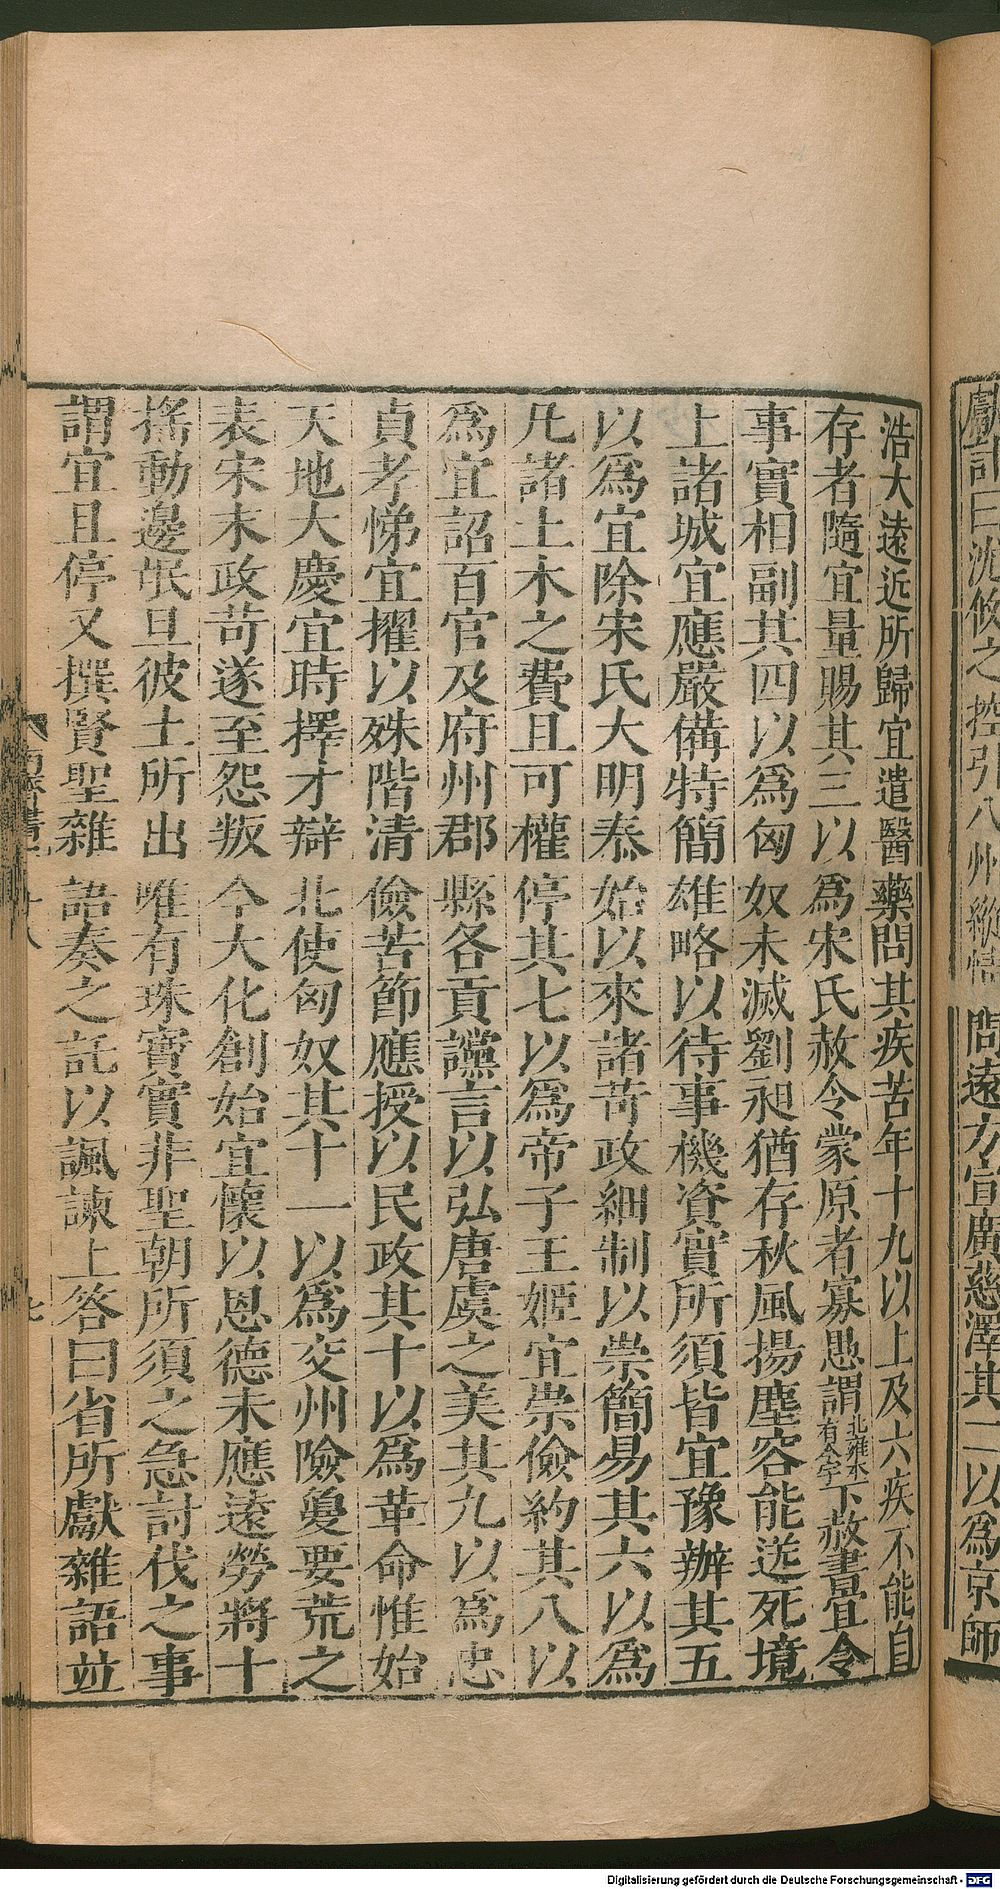 獻
曰沈攸之控引八州
問遠方宣廣慈澤其二以為京師
浩大遠近所歸宜遣醫藥問其疾苦年十九以上及六疾不能自
存者隨宜量賜其三以為宋氏赦令蒙原者寡愚謂北雍本有令字下赦書畳令
事實相副其四以為匈奴未滅劉昶猶存秋風揚塵容能送死境
上諸城宜應嚴備特簡雄略以待事機資實所須皆宜豫辦其五
以為宜除宋氏大明泰始以來諸苛政細制以崇簡易其六以為
凡諸土木之費且可權停其七以為帝子王姬宜崇儉約其八以
為宜詔百官及府州郡縣各貢讜言以弘唐虞之美其九以為忠
貞孝悌宜擢以殊階清儉苦節應授以民政其十以為革命惟始
天地大慶宜時擇才辯北使匈奴其十一以為交州險夐要荒之
表宋末政苛遂至怨叛今大化創始宜懷以恩德未應遠勞將十
搖動邊氓且彼土所出唯有珠寶實非聖朝所須之急討伐之事
謂宜且停又撰賢聖雜語奏之託以諷諫上答曰省所獻雜語並
Digitalisierung gefördert durch die Deutsche Forschungsgemeinschaft - DFG